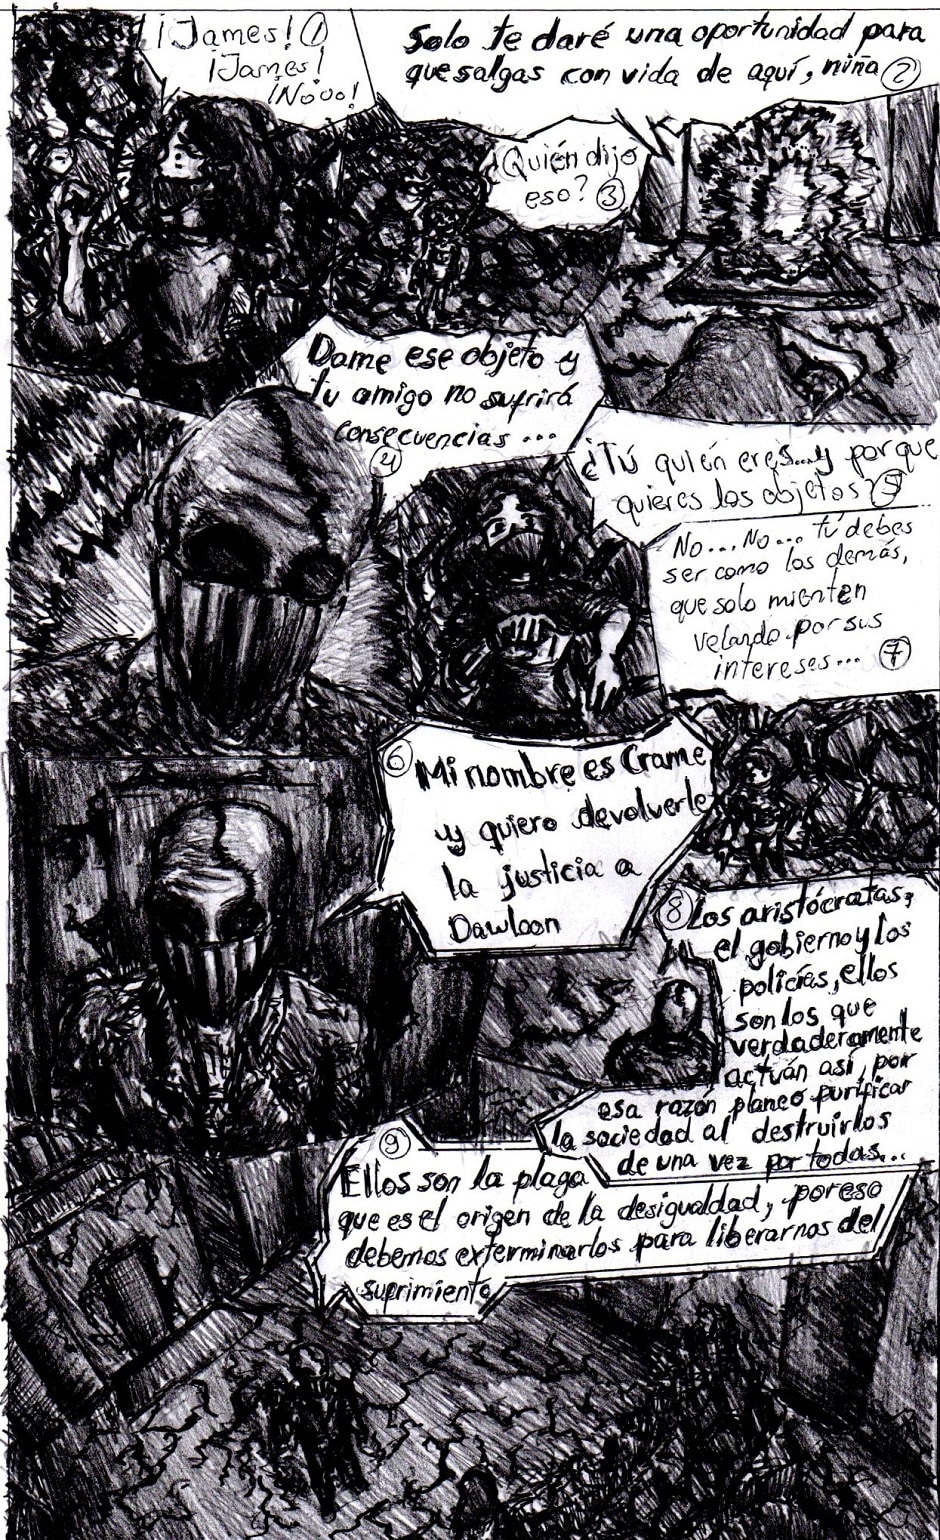 ¡James! 1
¡James!
¡Nooo!
Solo te daré una oportunidad para
que salgas con vida de aquí, niña 2
¿Quién dijo
eso? 3
Dame ese objeto y
tu amigo no sufrirá
consecuencias ...
4
¿Tú quién eres...y porque
quieres los objetos? 5
6 Mi nombre es Crame
y quiero devolverle
la justicia a
Dawloon
No...No... tú debes
ser como los demás,
que solo mienten
velando por sus
intereses... 7
8 Los aristócratas,
el gobierno y los
policías, ellos
son los que
verdaderamente
actúan así, por
esa razón planeo purificar
la sociedad al destruirlos
de una vez por todas...
9
Ellos son la plaga
que es el origen de la desigualdad, por eso
debemos exterminarlos para liberarnos del
suprimiento